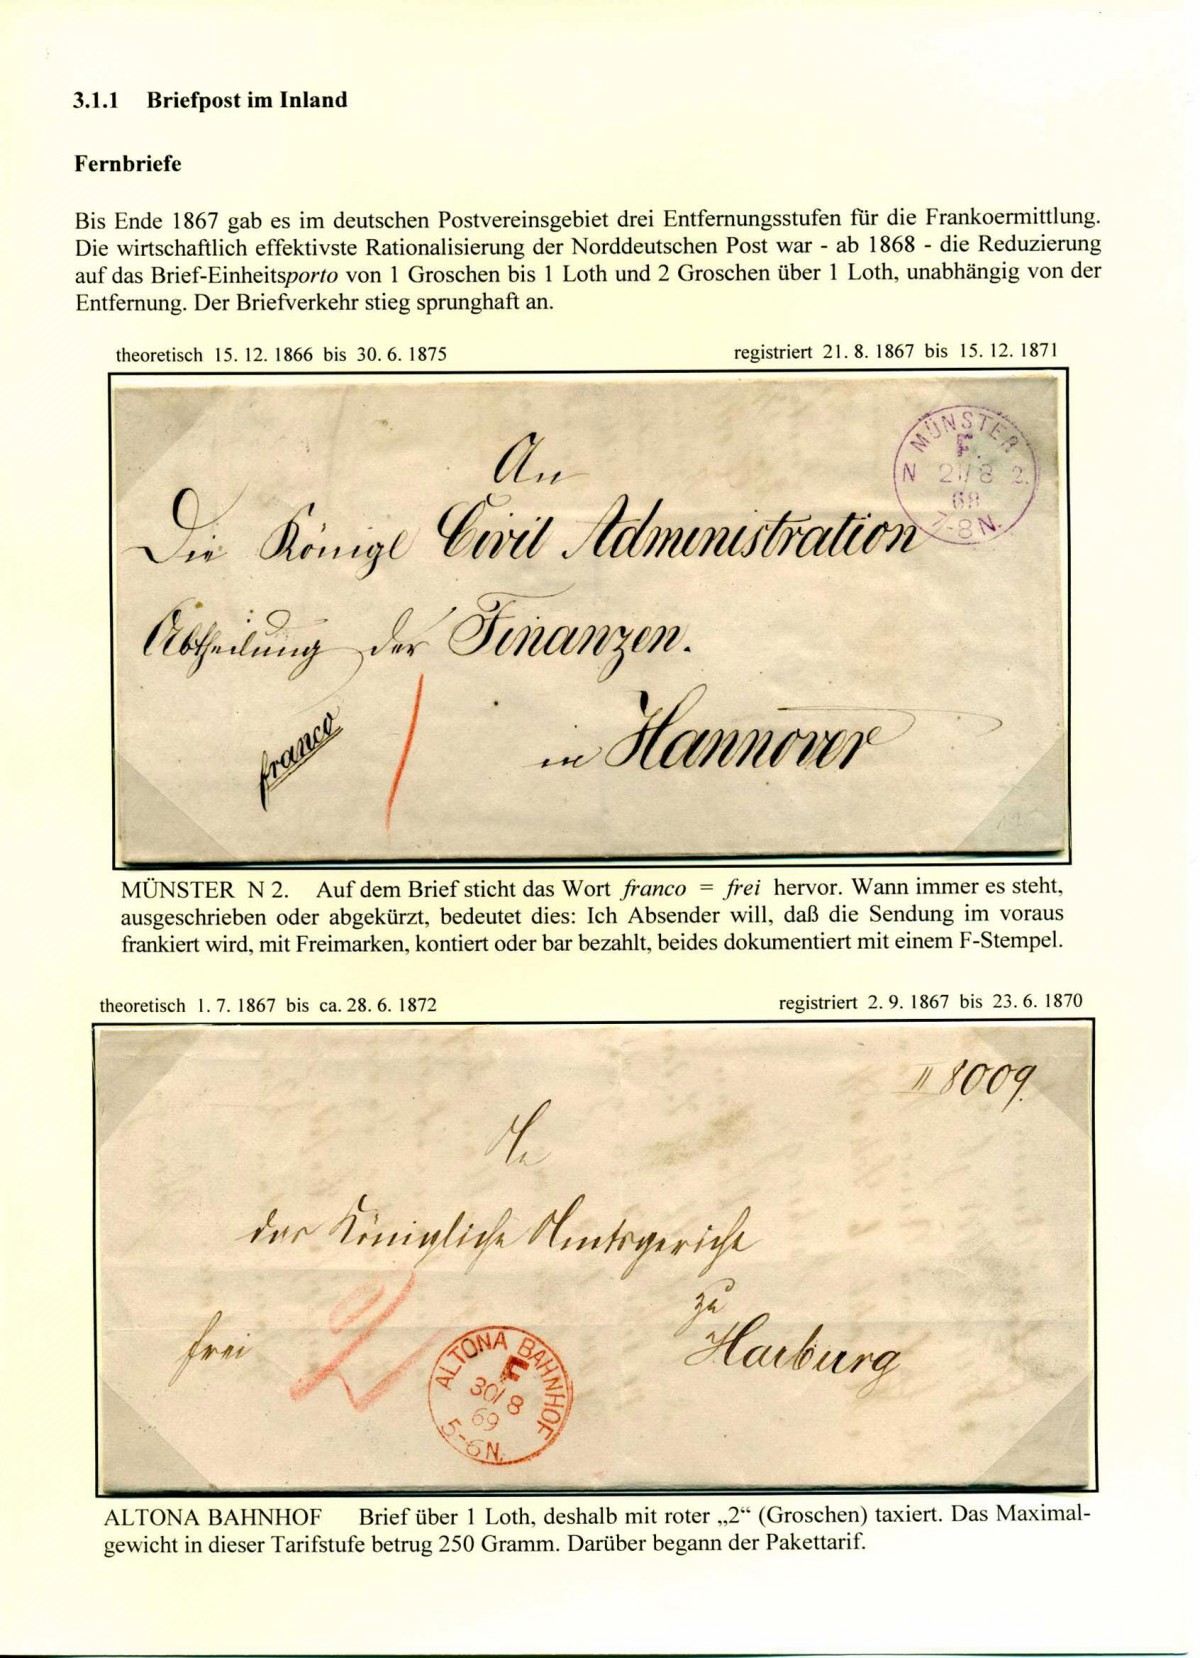 3.1.1 Briefpost im Inland
Fernbriefe
Bis Ende 1867 gab es im deutschen Postvereinsgebiet drei Entfernungsstufen für die Frankoermittlung.
Die wirtschaftlich effektivste Rationalisierung der Norddeutschen Post war - ab 1868 - die Reduzierung
auf das Brief-Einheitsporto von 1 Groschen bis 1 Loth und 2 Groschen über 1 Loth, unabhängig von der
Entfernung. Der Briefverkehr stieg sprunghaft an.
theoretisch 15. 12. 1866 bis 30. 6. 1875
registriert 21. 8. 1867 bis 15. 12. 1871
MÜNSTER
F.
N 21/8 2.
68
7-8 N.
An
Die Königl Civil Administration
Abtheilung der Finanzen.
franco
1
in Hannover
MÜNSTER N 2. Auf dem Brief sticht das Wort franco = frei hervor. Wann immer es steht,
ausgeschrieben oder abgekürzt, bedeutet dies: Ich Absender will, daß die Sendung im voraus
frankiert wird, mit Freimarken, kontiert oder bar bezahlt, beides dokumentiert mit einem F-Stempel.
theoretisch 1. 7. 1867 bis ca. 28. 6. 1872
registriert 2. 9. 1867 bis 23. 6. 1870
II 8009.
An
das Königliche Amtsgericht
zu
Harburg
frei
2
ALTONA BAHNHOF
F
30/8
69
5-6 N.
ALTONA BAHNHOF Brief über 1 Loth, deshalb mit roter „2“ (Groschen) taxiert. Das Maximal-
gewicht in dieser Tarifstufe betrug 250 Gramm. Darüber begann der Pakettarif.